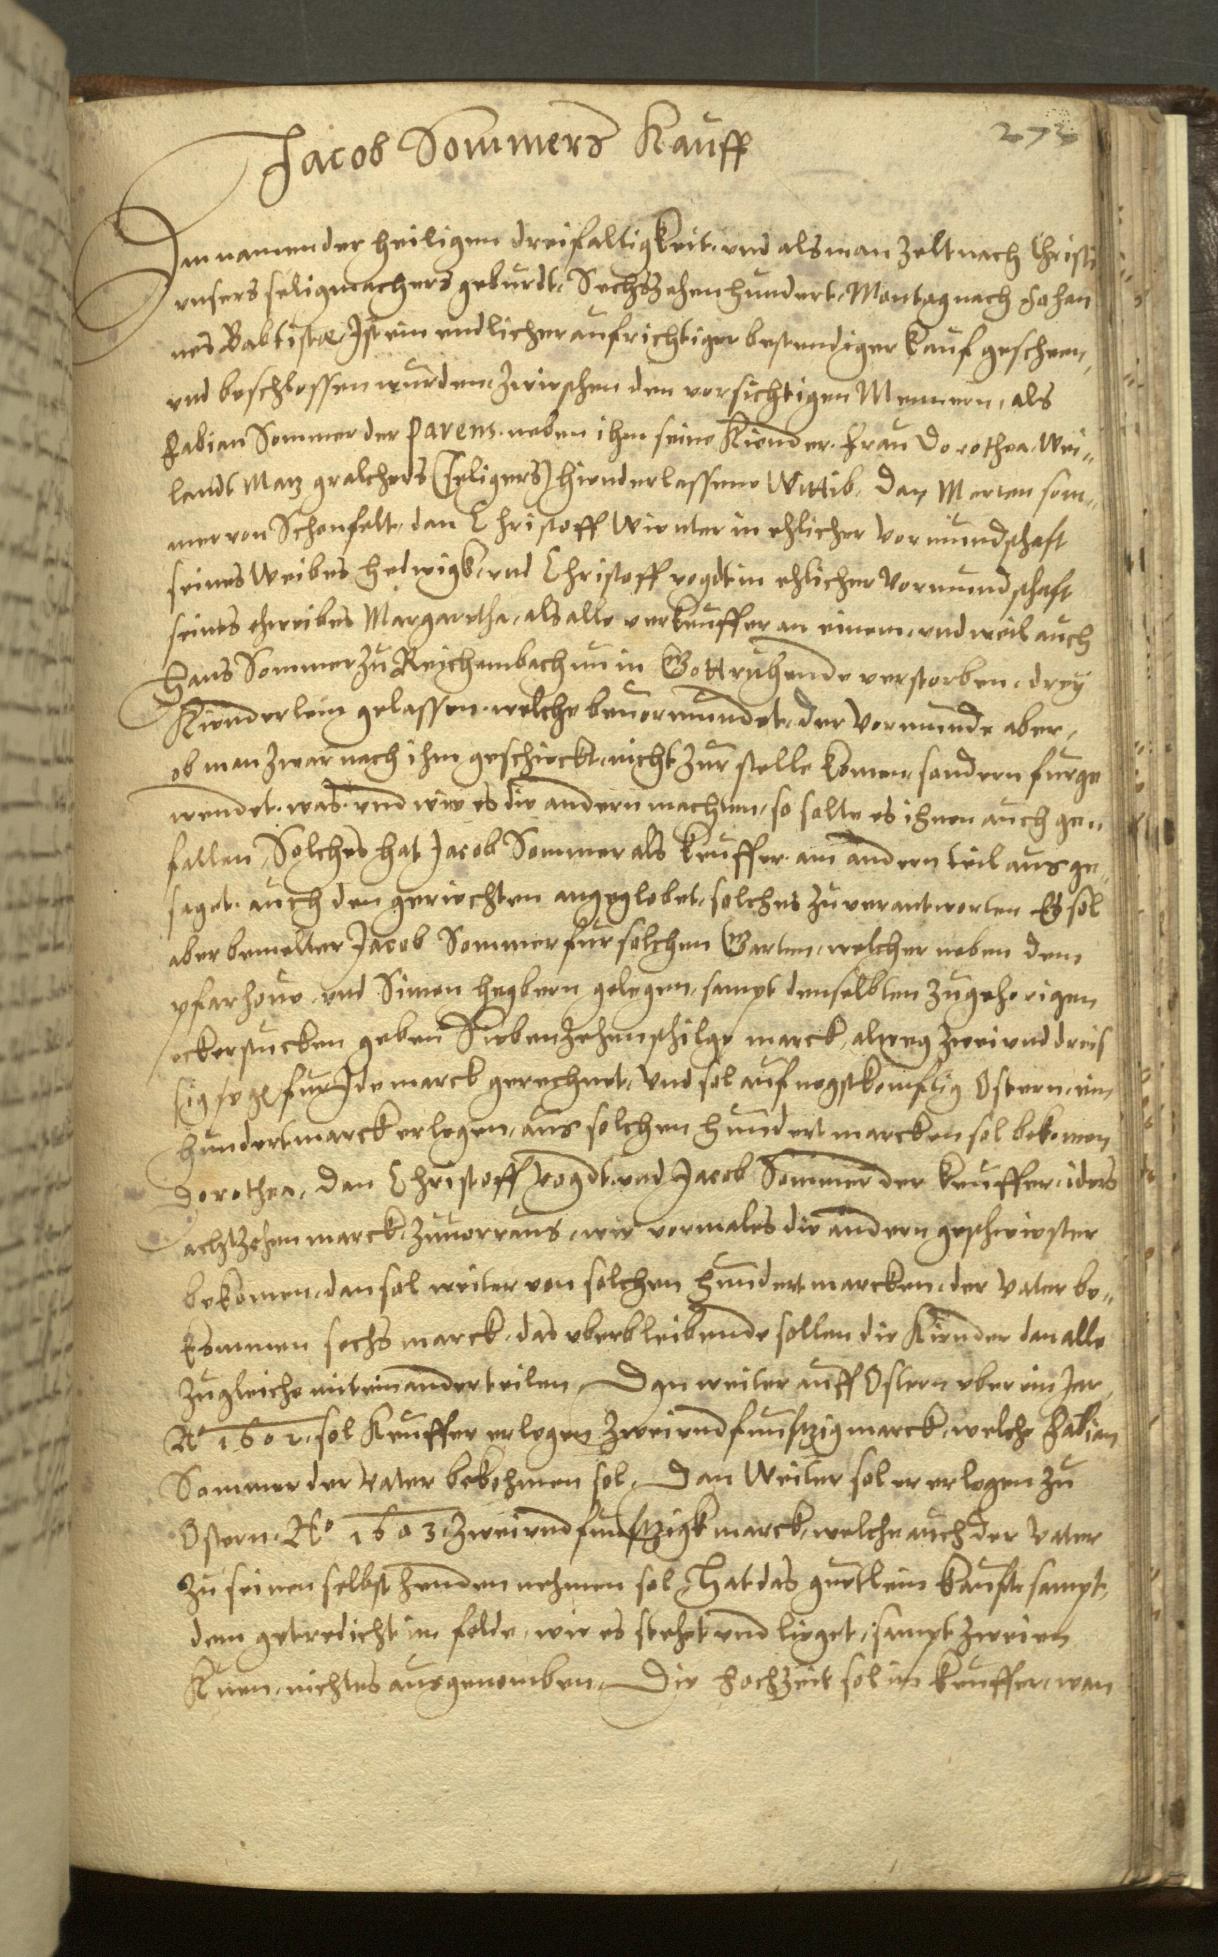 272
Jacob Sommers Kauff
Im namen der heiligen dreifaltigkeit, und als man zelt nach Christi
unsers seligmachers geburdt, Sechszehenhundert, Montag nach Johan
nes Babtistæ, Ist ein endlicher aufrichtiger bestendiger kauf gescheen,
und beschlossen wurden, zwischen den vorsichtigen Mennern, als
Fabian Sommer der parens. neben ihm seine Kiender. Frau Dorothea Wei„
landt Matz gralcheds (seligers) hienderlassene Wittib, dan Merten som„
mer von Schonfelt, dan Christoff Winter in ehlicher vormundschaft
seines Weibes Hedwigk, und Christoff vogdt in ehlicher Vormundschaft
seines eweibes Margaretha, als alle verkeuffer an einem, und weil auch
Hans Sommer zu Reichembach nu in Gott ruhende verstorben, drey
Kienderlein gelassen. welche bevormundet, der Vormunde aber,
ob man zwar nach ihm geschickt, nicht zur stelle komen, sondern furge
wendet. was und wie es die andern machten, so solte es ihnen auch ge„
fallen, Solches hat Jacob Sommer als keuffer am andern teil ausge„
saget. auch den geriechten angeglobet, solches zuverantworten Es sol
aber bemelter Jacob Sommer fur solchen Garten, welcher neben dem
pfarhove und Simon hegbern gelegen, sampt denselbten zugehorigen
eckerstucken geben Siebenzehen schilge marck, alweg zwei und dreis
sig sgl fur Jde marck gerechnet, und sol auf negstkomftig Ostern, ein
hundert marck erlegen, aus solchen hundert marcken sol bekomen
Dorothea, dan Christoff Vogdt. und Jacob Sommer der keuffer, ides
achtzehen marck, zuvorraus, wie vormales die andern geschwiester
bekomen, dan sol weiter von solchen hundert marcken, der Vater be„
kommen sechs marck, das uberbleibende sollen die Kiender dan alle
zugleiche miteinander teilen, Dan weiter auff Ostern uber ein Jar,
Aº 1602, sol Keuffer erlegen zwei und funftzig marck, welche Fabian
Sommer der Vater bekohmen sol, Dan Weiter sol er erlegen zu
Ostern. Aº 1603 zwei und funftzigk marck, welche auch der Vater
zu seinen selbst henden nehmen sol, Hat das guttlein kaufft sampt,
dem getredicht im felde, wie es stehet und lieget, sampt zweien
Kuen, nichtes ausgenomben, Die hochzeit sol im keuffer, wan